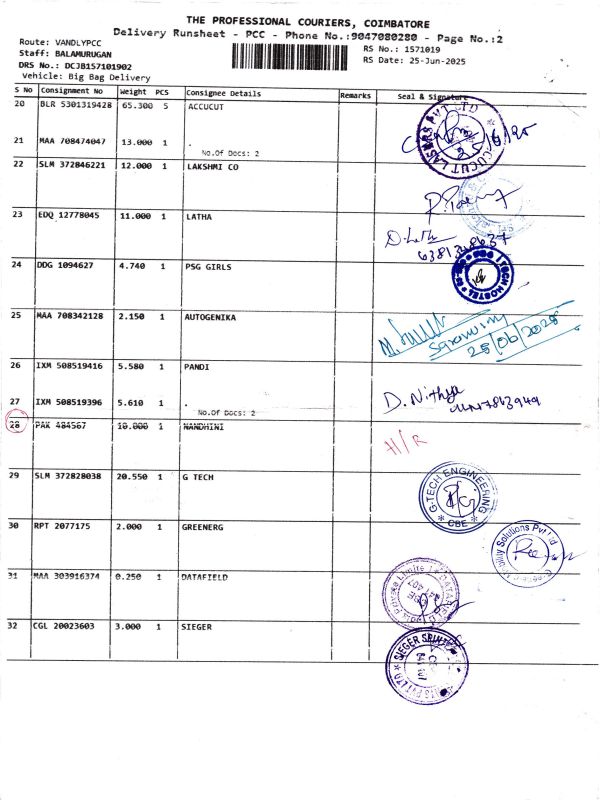 THE PROFESSIONAL COURIERS, COIMBATORE
Delivery Runsheet - PCC - Phone No.:9047080280 - Page No.:2
Route: VANDLYPCC
Staff: BALAMURUGAN
DRS No.: DCJB157101902
Vehicle: Big Bag Delivery
RS No.: 1571019
RS Date: 25-Jun-2025
S No Consignment No Weight PCS Consignee Details Remarks Seal & Signature
20 BLR 5301319428 65.300 5 ACCUCUT
21 MAA 708474047 13.000 1 .
No.Of Docs: 2
22 SLM 372846221 12.000 1 LAKSHMI CO
23 EDQ 12778045 11.000 1 LATHA
D. Latha
6381348637
24 DDG 1094627 4.740 1 PSG GIRLS
25 MAA 708342128 2.150 1 AUTOGENIKA
25/06/2025
26 IXM 508519416 5.580 1 PANDI
27 IXM 508519396 5.610 1 .
No.Of Docs: 2
D. Nithya
28 PAK 484567 10.000 1 NANDHINI
H/R
29 SLM 372828038 20.550 1 G TECH
G.TECH ENGINEERING
CBE
30 RPT 2077175 2.000 1 GREENERG
31 MAA 303916374 0.250 1 DATAFIELD
32 CGL 20023603 3.000 1 SIEGER